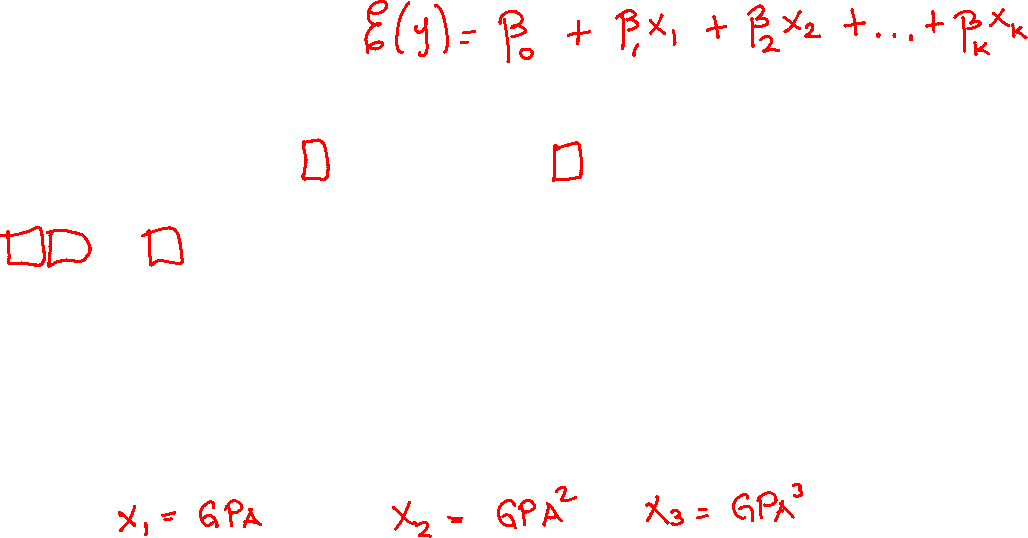 E(y) = β₀ + β₁x₁ + β₂x₂ + ... + βₖxₖ
x₁ = GPA x₂ = GPA² x₃ = GPA³